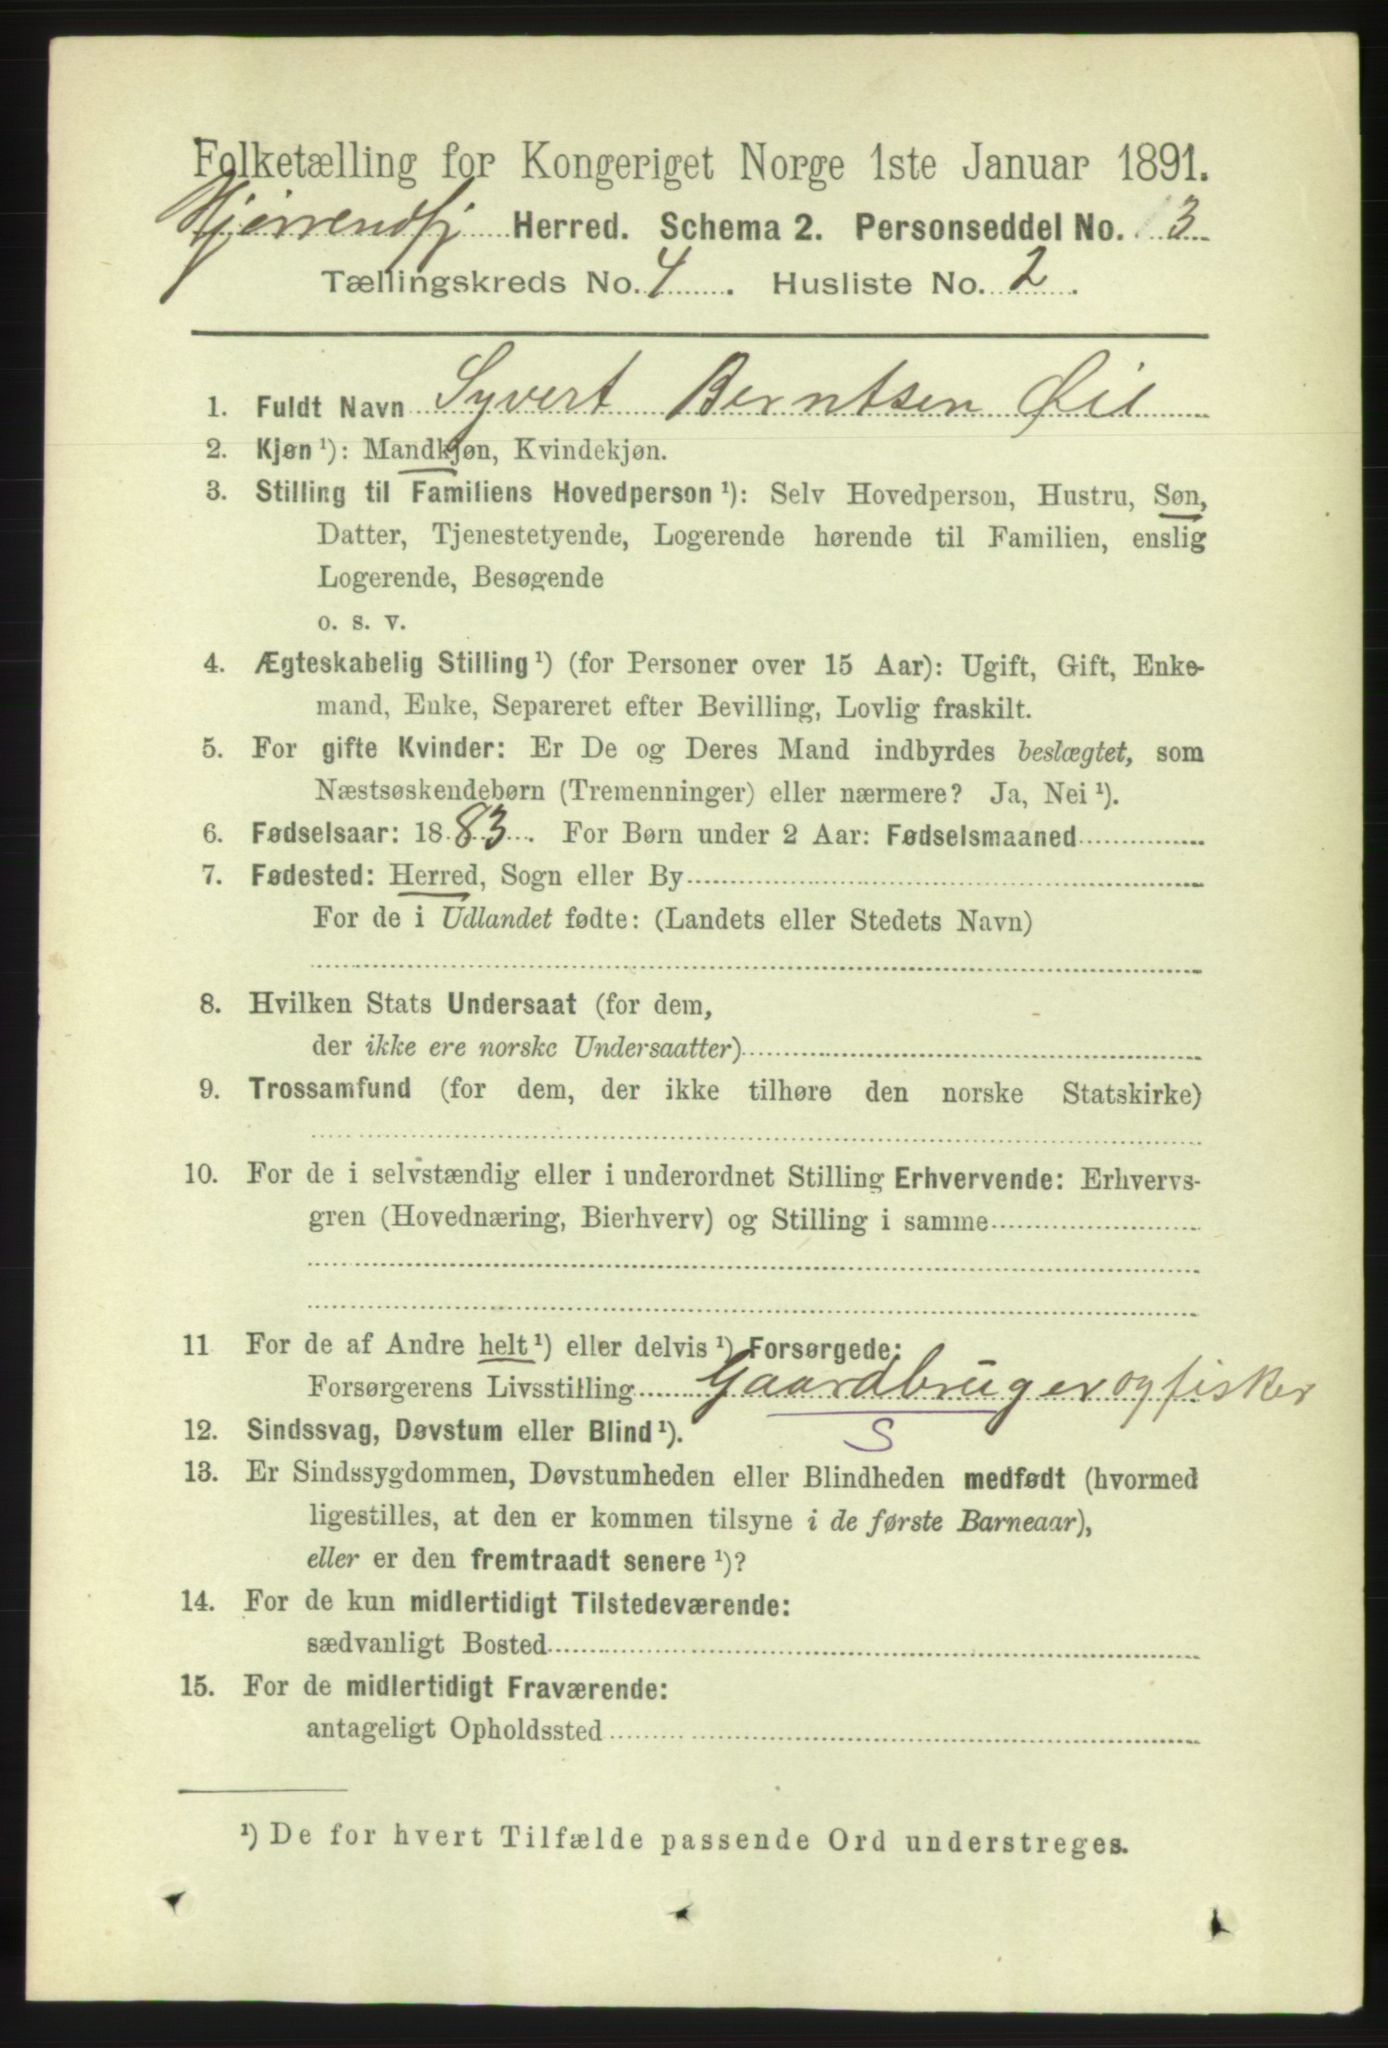 Folketælling for Kongeriget Norge 1ste Januar 1891.
Hjørrendfj Herred. Schema 2. Personseddel No. 3
Tællingskreds No. 4. Husliste No. 2.
1. Fuldt Navn Syvert Berntsen Øie
2. Kjøn¹): Mandkjøn, Kvindekjøn.
3. Stilling til Familiens Hovedperson¹): Selv Hovedperson, Hustru, Søn,
Datter, Tjenestetyende, Logerende hørende til Familien, enslig
Logerende, Besøgende
o. s. v.
4. Ægteskabelig Stilling¹) (for Personer over 15 Aar): Ugift, Gift, Enke-
mand, Enke, Separeret efter Bevilling, Lovlig fraskilt.
5. For gifte Kvinder: Er De og Deres Mand indbyrdes beslægtet, som
Næstsøskendebørn (Tremenninger) eller nærmere? Ja, Nei¹).
6. Fødselsaar: 1883. For Børn under 2 Aar: Fødselsmaaned
7. Fødested: Herred, Sogn eller By
For de i Udlandet fødte: (Landets eller Stedets Navn)
8. Hvilken Stats Undersaat (for dem,
der ikke ere norske Undersaatter)
9. Trossamfund (for dem, der ikke tilhøre den norske Statskirke)
10. For de i selvstændig eller i underordnet Stilling Erhvervende: Erhvervs-
gren (Hovednæring, Bierhverv) og Stilling i samme
11 For de af Andre helt¹) eller delvis¹) Forsørgede:
Forsørgerens Livsstilling Gaardbruger og fisker
12. Sindssvag, Døvstum eller Blind¹). S
13. Er Sindssygdommen, Døvstumheden eller Blindheden medfødt (hvormed
ligestilles, at den er kommen tilsyne i de første Barneaar),
eller er den fremtraadt senere¹)?
14. For de kun midlertidigt Tilstedeværende:
sædvanligt Bosted
15. For de midlertidigt Fraværende:
antageligt Opholdssted
¹) De for hvert Tilfælde passende Ord understreges.